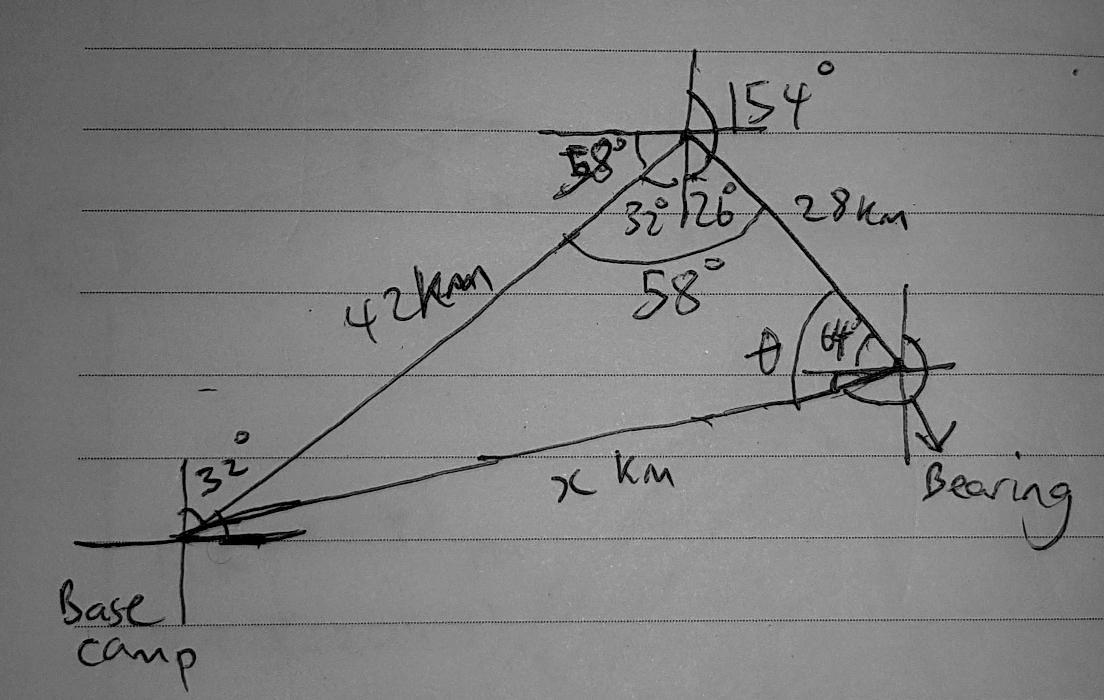 154°
58°
32° 26°
28 km
58°
42 km
θ 64°
32°
x km
Bearing
Base
camp